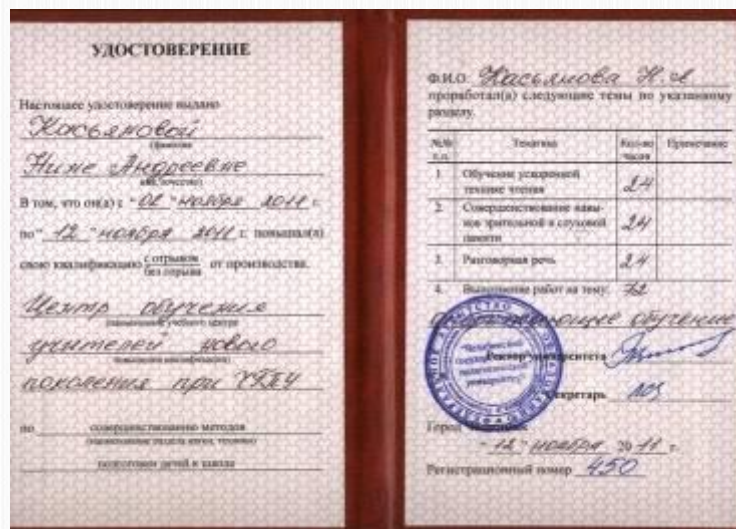 УДОСТОВЕРЕНИЕ
Настоящее удостоверение выдано
Касьяновой
(фамилия
Нине Андреевне
имя, отчество)
В том, что он(а) с "02" ноября 2011 г.
по "12" ноября 2011 г. повышал(а)
свою квалификацию с отрывом
без отрыва от производства.
Центр обучения
(наименование учебного центра
учителей нового
повышения квалификации)
поколения при ЧГПУ
по совершенствованию методов
(наименование раздела науки, техники)
подготовки детей к школе
Ф.И.О. Касьянова Н.А
проработал(а) следующие темы по указанному
разделу.
№№ п.п. Тематика Кол-во часов Примечание
1. Обучение ускоренной
технике чтения 24
2. Совершенствование навы-
ков зрительной и слуховой
памяти 24
3. Разговорная речь 24
4. Выполнение работ на тему: 72
обучение
Ректор университета
Секретарь
Город
"12" ноября 2011 г.
Регистрационный номер 450